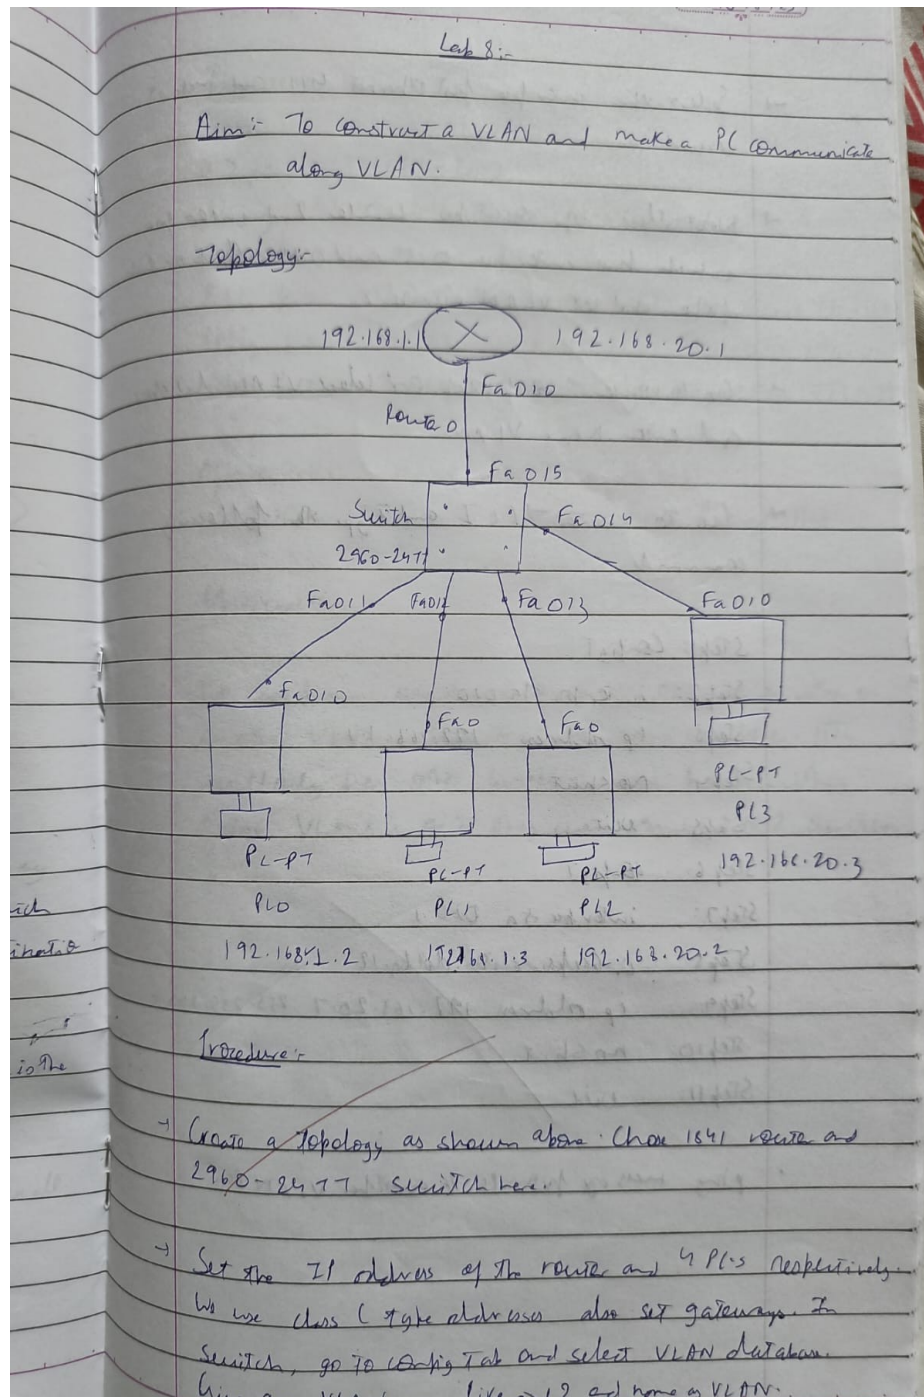 Lab 8:-
Aim:- To construct a VLAN and make a PC communicate
along VLAN.
Topology:-
192.168.1.1 192.168.20.1
Fa0/0
Router 0
Fa0/5
Switch
2960-24TT
Fa0/4
Fa0/1 Fa0/2 Fa0/3 Fa0/0
Fa0/0
Fa0 Fa0
PC-PT
PC3
192.168.20.3
PC-PT PC-PT PC-PT
PC0 PC1 PC2
192.168.1.2 192.168.1.3 192.168.20.2
ich
is the
Procedure:-
→ Create a topology as shown above. Chose 1841 router and
2960-24TT switch here.
→ Set the IP address of the router and 4 PC-s respectively.
We use class C type addresses also set gateways. In
switch, go to config Tab and select VLAN database.
and name as VLAN.